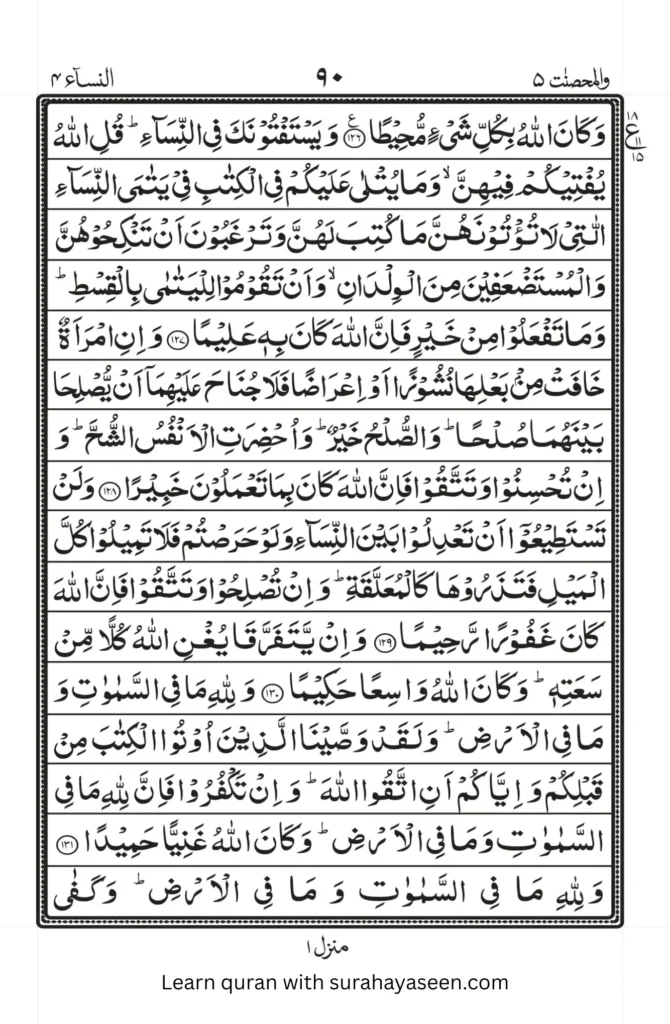 والمحصنت ۵ ۹۰ النسآء ۴
وَكَانَ اللّٰهُ بِكُلِّ شَیْءٍ مُّحِیْطًا ﴿۱۲۶﴾ ع وَیَسْتَفْتُوْنَكَ فِی النِّسَآءِ ؕ قُلِ اللّٰهُ
۱۸ ع ۱۱ ۱۵
یُفْتِیْكُمْ فِیْهِنَّ ۙ وَمَا یُتْلٰی عَلَیْكُمْ فِی الْكِتٰبِ فِیْ یَتٰمَی النِّسَآءِ
الّٰتِیْ لَا تُؤْتُوْنَهُنَّ مَا كُتِبَ لَهُنَّ وَتَرْغَبُوْنَ اَنْ تَنْكِحُوْهُنَّ
وَالْمُسْتَضْعَفِیْنَ مِنَ الْوِلْدَانِ ۙ وَاَنْ تَقُوْمُوْا لِلْیَتٰمٰی بِالْقِسْطِ ؕ
وَمَا تَفْعَلُوْا مِنْ خَیْرٍ فَاِنَّ اللّٰهَ كَانَ بِهٖ عَلِیْمًا ﴿۱۲۷﴾ وَاِنِ امْرَاَةٌ
خَافَتْ مِنْۢ بَعْلِهَا نُشُوْزًا اَوْ اِعْرَاضًا فَلَا جُنَاحَ عَلَیْهِمَاۤ اَنْ یُّصْلِحَا
بَیْنَهُمَا صُلْحًا ؕ وَالصُّلْحُ خَیْرٌ ؕ وَاُحْضِرَتِ الْاَنْفُسُ الشُّحَّ ؕ وَ
اِنْ تُحْسِنُوْا وَتَتَّقُوْا فَاِنَّ اللّٰهَ كَانَ بِمَا تَعْمَلُوْنَ خَبِیْرًا ﴿۱۲۸﴾ وَلَنْ
تَسْتَطِیْعُوْۤا اَنْ تَعْدِلُوْا بَیْنَ النِّسَآءِ وَلَوْ حَرَصْتُمْ فَلَا تَمِیْلُوْا كُلَّ
الْمَیْلِ فَتَذَرُوْهَا كَالْمُعَلَّقَةِ ؕ وَاِنْ تُصْلِحُوْا وَتَتَّقُوْا فَاِنَّ اللّٰهَ
كَانَ غَفُوْرًا رَّحِیْمًا ﴿۱۲۹﴾ وَاِنْ یَّتَفَرَّقَا یُغْنِ اللّٰهُ كُلًّا مِّنْ
سَعَتِهٖ ؕ وَكَانَ اللّٰهُ وَاسِعًا حَكِیْمًا ﴿۱۳۰﴾ وَلِلّٰهِ مَا فِی السَّمٰوٰتِ وَ
مَا فِی الْاَرْضِ ؕ وَلَقَدْ وَصَّیْنَا الَّذِیْنَ اُوْتُوا الْكِتٰبَ مِنْ
قَبْلِكُمْ وَاِیَّاكُمْ اَنِ اتَّقُوا اللّٰهَ ؕ وَاِنْ تَكْفُرُوْا فَاِنَّ لِلّٰهِ مَا فِی
السَّمٰوٰتِ وَمَا فِی الْاَرْضِ ؕ وَكَانَ اللّٰهُ غَنِیًّا حَمِیْدًا ﴿۱۳۱﴾
وَلِلّٰهِ مَا فِی السَّمٰوٰتِ وَ مَا فِی الْاَرْضِ ؕ وَكَفٰی
منزل ۱
Learn quran with surahayaseen.com